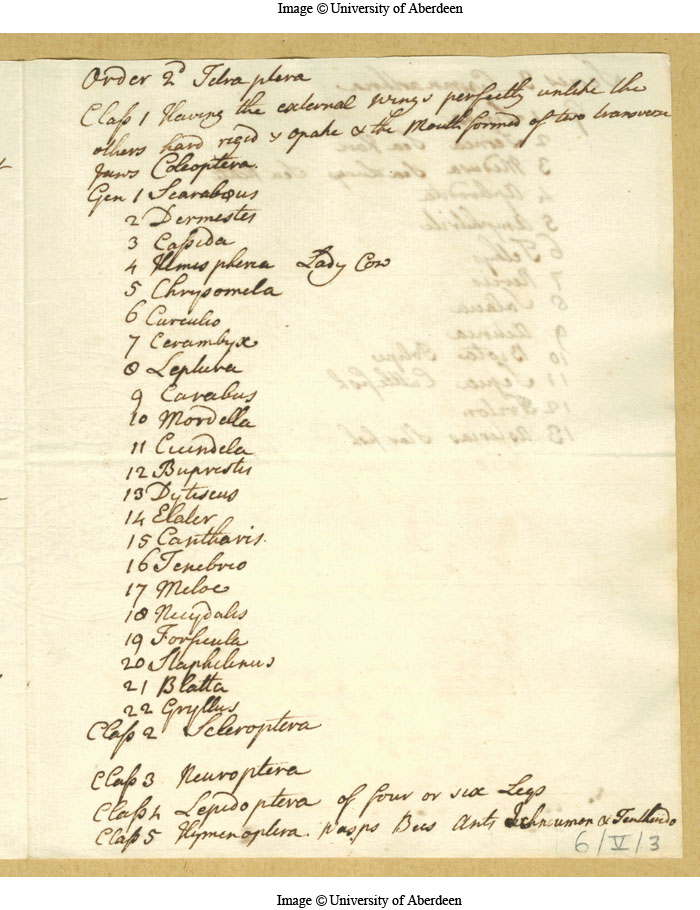 Image © University of Aberdeen
Order 2d Tetraptera
Class 1 Having the external wings perfectly unlike the
others hard rigid & opake & the Mouth formed of two transverse
Jaws Coleoptera.
Gen 1 Scarabæus
2 Dermestes
3 Cassida
4 Hemispheria Lady Cow
5 Chrysomela
6 Curculio
7 Cerambyx
8 Leptura
9 Carabus
10 Mordella
11 Cicindela
12 Buprestis
13 Dytiscus
14 Elater
15 Cantharis.
16 Tenebrio
17 Meloe
18 Necydalis
19 Forficula
20 Staphilinus
21 Blatta
22 Gryllus
Class 2 Scleroptera
Class 3 Neuroptera
Class 4 Lepidoptera of four or six Legs
Class 5 Hymenoptera. Wasps Bees Ants Ichneumon & Tenthredo
6/V/3
Image © University of Aberdeen